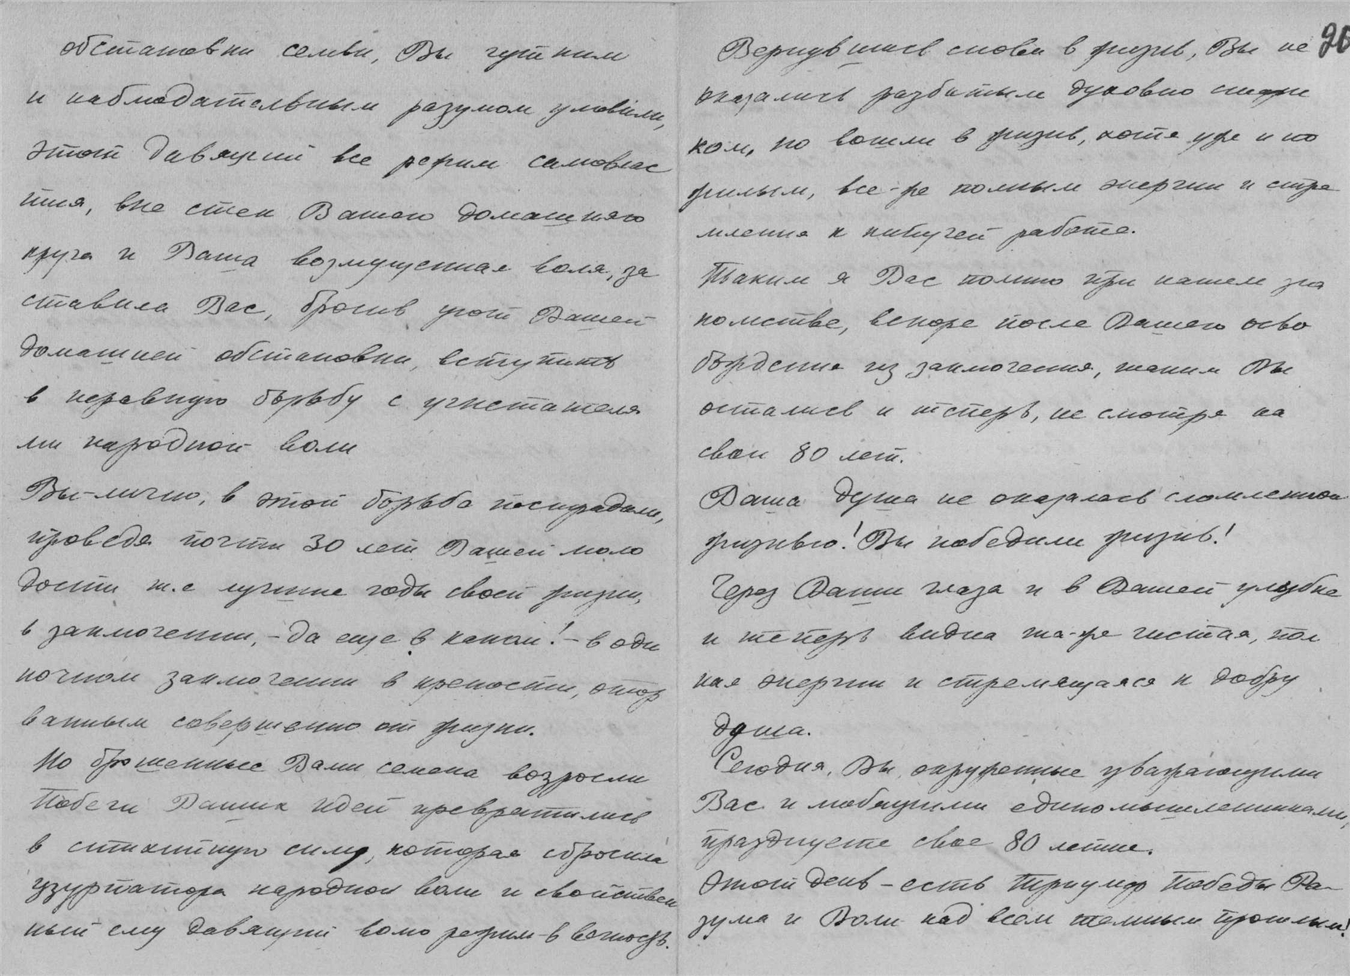 обстановки семьи, Вы чутким
и наблюдательным разумом уловили,
этот давящий все режим самовлас
тия, вне стен Вашего домашняго
круга и Ваша возмущенная воля, за
ставила Вас, бросив уют Вашей
домашней обстановки, вступить
в неравную борьбу с угнетателя
ми народной воли
Вы-лично, в этой борьбе пострадали,
проведя почти 30 лет Вашей моло
дости т.е лучшие годы своей жизни,
в заключении, - да еще в каком! - в оди
ночном заключении в крепости, отор
ванным совершенно от жизни.
Но брошенные Вами семена возросли
Побеги Ваших идей превратились
в стихийную силу, которая сбросила
узурпатора народной воли и свойствен
ный ему давящий волю режим - в вечность.
20
Вернувшись снова в жизнь, Вы не
оказались разбитым духовно
ком, но вошли в жизнь, хотя уже и по
жилым, все-же полным энергии и стре
мления к кипучей работе.
Таким я Вас помню при нашем зна
комстве, вскоре после Вашего осво
бождения из заключения, таким Вы
остались и теперь, не смотря на
свои 80 лет.
Ваша душа не оказалась сломленной
жизнью! Вы победили жизнь!
Через Ваши глаза и в Вашей улыбке
и теперь видна та-же чистая, пол
ная энергии и стремящаяся к добру
душа.
Сегодня, Вы, окруженные уважающими
Вас и любящими единомышленниками,
празднуете свое 80 летие.
Этот день - есть Триумф Победы Ра-
зума и Воли над всем темным прошлым!